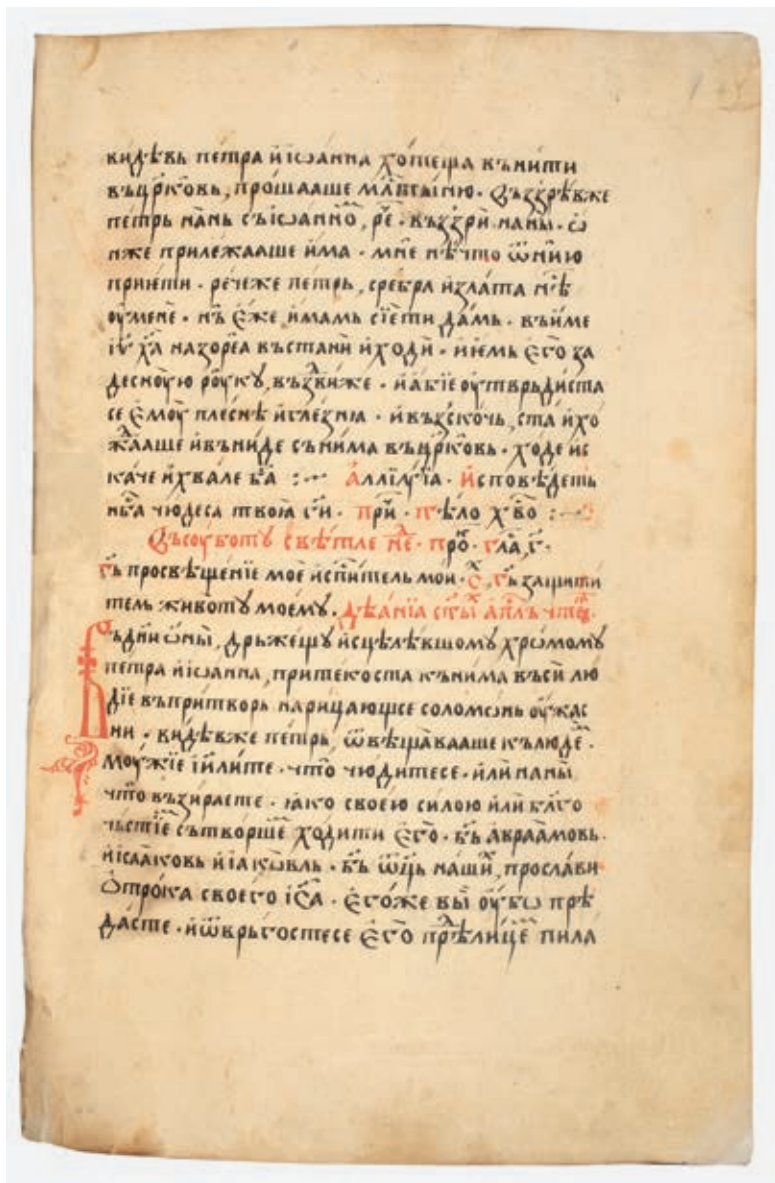 видѣвь петра и іѡанна хотеща вьнити
вьцр҃ковь, прошааше мл҃стыню. Вьззрѣвже
петрь нань сьіѡанномь, ре҃. вьззри наны. ѡ
нже прилежааше има. мне нѣчто ѿнию
приꙗти. речеже петрь, сребра и злата нѣ
оу мене. нь еже имамь сіети дамь. вьиме
іу҃ ха҃ назореа вьстани и ходи. и ѥмь его за
десноую роукꙋ, вьздвиже. и абіе оутврьдиста
се емоу плеснѣ и глезнꙗ. и вьзскочь, ста и хо
ждааше и вьниде сьнима вьцр҃ковь. ходе и с
каче и хвале ба҃ :~ Аллилуіа. Исповѣдеть
нб҃а чюдеса твоꙗ ги҃. при҃. тѣло хв҃о :~
Вьсоуботꙋ свѣтлѥ не҃. про҃. гла҃, г҃.
гь҃ просвѣщеніе мое и спситель мои. с҃, гь҃ защити
тель животꙋ моемꙋ. дѣаніа ст҃ы ап҃ль чте҃.
Вьдни ѡны, дрьжещꙋ исцѣлѣвшомꙋ хромомꙋ
петра и іѡанна, притекоста кьнима вьси лю
діе вьпритворь нарицающсе соломѡнь оужас
ни. видѣвже петрь, ѿвѣщавааше кьлюде҃.
моужіе іи҃лите. что чюдитесе. или наны
что вьзираете. ꙗко своею силою или бл҃го
чьстіе҃ сьтворше҃ ходити его. бь҃ авраамовь.
и исааковь и іакѡвль. бь҃ ѿць наши҃, прослави
отрока своего іс҃а. егоже вы оубѡ прѣ
дасте. и ѿврьгостесе его прѣ лице҃ пила